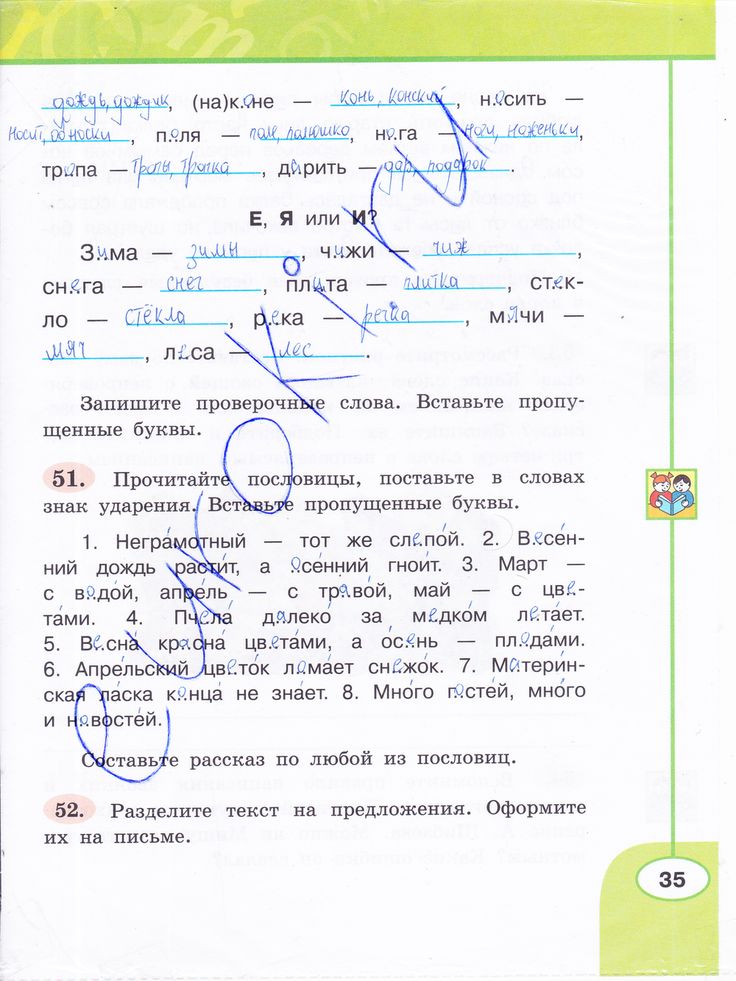 дождь, дождик, (на)коне — конь, конский, носить —
носит, обноски, поля — поле, полюшко, нога — ноги, ноженьки,
тропа — тропы, тропка, дарить — дар, подарок.
Е, Я или И?
Зима — зимы, чижи — чиж,
снега — снег, плита — плитка, стек-
ло — стёкла, река — речка, мячи —
мяч, леса — лес
Запишите проверочные слова. Вставьте пропу-
щенные буквы.
51. Прочитайте пословицы, поставьте в словах
знак ударения. Вставьте пропущенные буквы.
1. Негра́мотный — тот же слепо́й. 2. Весе́н-
ний дождь расти́т, а осе́нний гнои́т. 3. Март —
с водо́й, апре́ль — с траво́й, май — с цве-
та́ми. 4. Пчела́ далеко́ за медко́м лета́ет.
5. Весна́ красна́ цвета́ми, а о́сень — плода́ми.
6. Апре́льский цвето́к лома́ет снежо́к. 7. Матери́н-
ская ла́ска конца́ не зна́ет. 8. Мно́го госте́й, мно́го
и новосте́й.
Составьте рассказ по любой из пословиц.
52. Разделите текст на предложения. Оформите
их на письме.
35